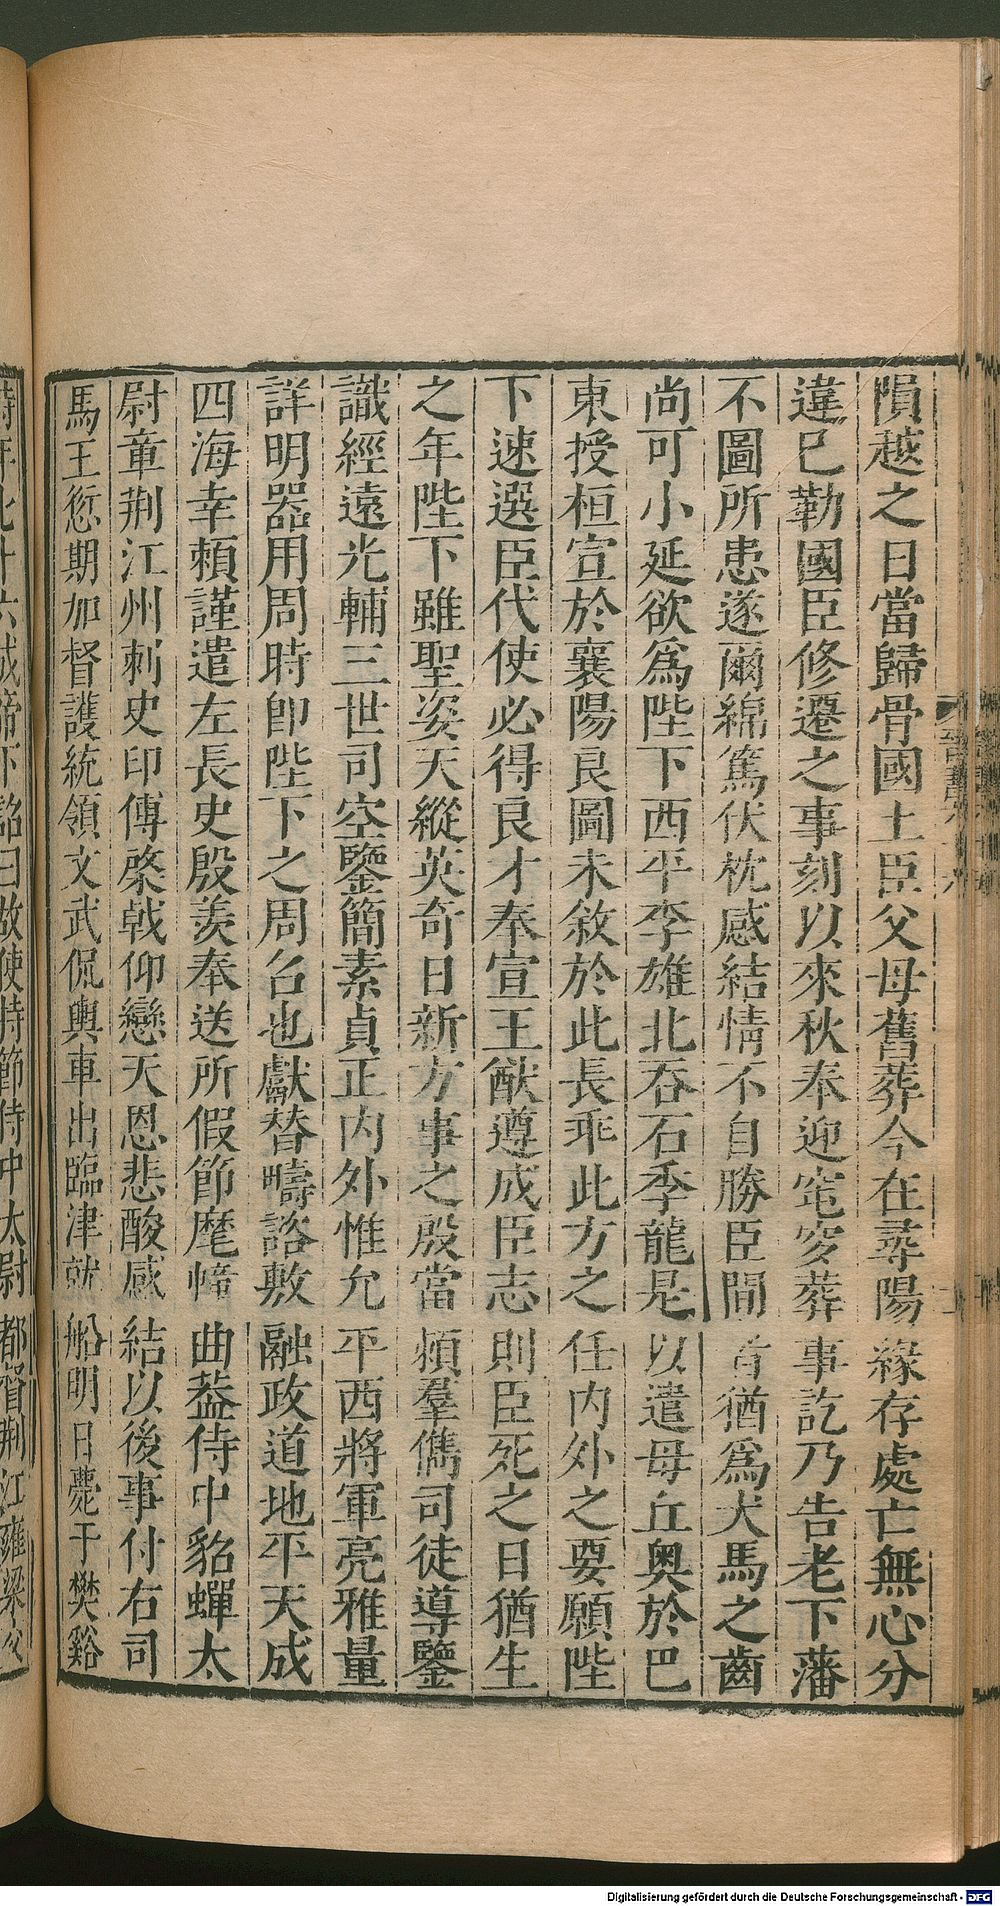 隕越之日當歸骨國土臣父母舊葬今在尋陽緣存處亡無心分
違已勒國臣修遷之事刻以來秋奉迎窀穸葬事訖乃告老下藩
不圖所患遂爾綿篤伏枕感結情不自勝臣間者猶爲犬馬之齒
尚可小延欲爲陛下西平李雄北吞石季龍是以遣母丘奧於巴
東授桓宣於襄陽良圖未敘於此長乖此方之任內外之要願陛
下速選臣代使必得良才奉宣王猷遵成臣志則臣死之日猶生
之年陛下雖聖姿天縱英奇日新方事之殷當頼羣儁司徒導鑒
識經遠光輔三世司空鑒簡素貞正內外惟允平西將軍亮雅量
詳明器用周時卽陛下之周召也獻替疇諮敷融政道地平天成
四海幸賴謹遣左長史殷羨奉送所假節麾幢曲葢侍中貂蟬太
尉章荆江州刺史印傳棨戟仰戀天恩悲酸感結以後事付右司
馬王愆期加督護統領文武侃輿車出臨津就船明日薨于樊谿
時年七十六成帝下詔曰故使持節侍中太尉都督荆江雍梁
Digitalisierung gefördert durch die Deutsche Forschungsgemeinschaft - DFG